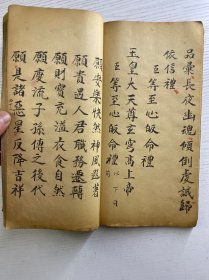 品彙長夜出魂傾倒處誠歸
依信禮
臣等至心皈命禮
玉皇大天尊玄穹高上帝
臣等至心皈命禮 以下月
願安樂快然神風慈著
願貴遇人君職務遷轉
願則寶充溢衣食自然
願慶流子孫傳之後代
願是諸惡星反降吉祥